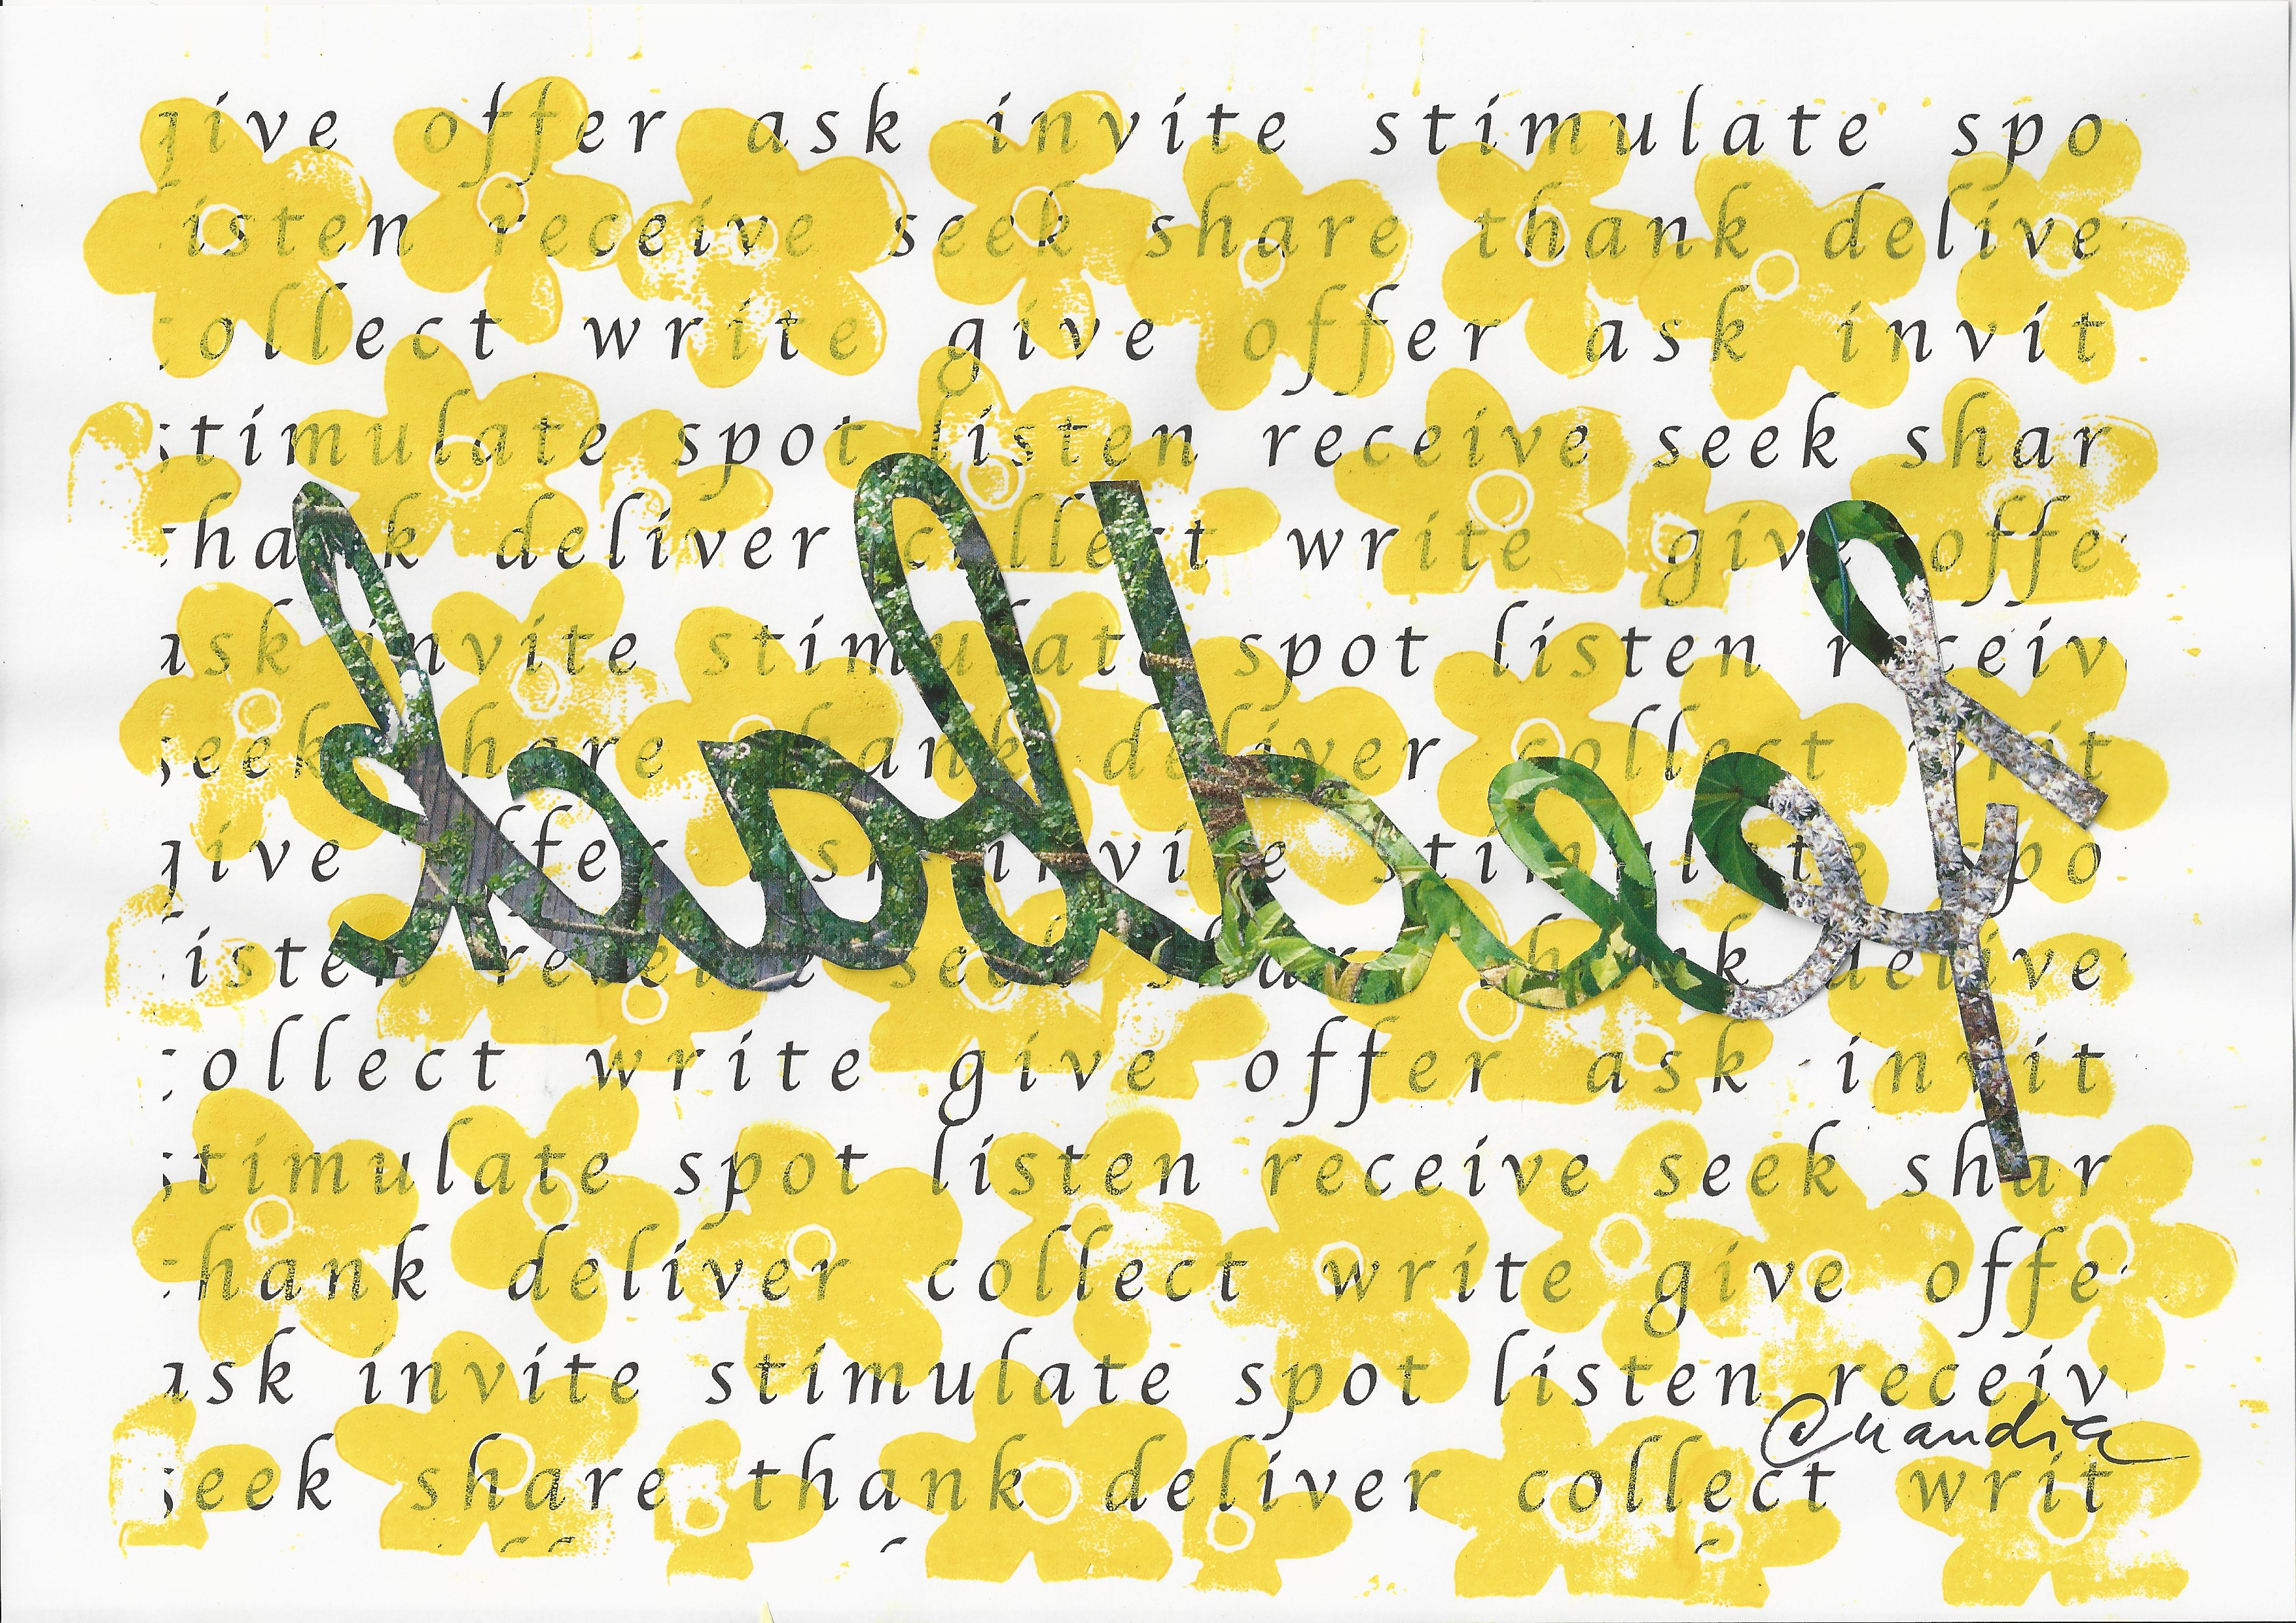 give offer ask invite stimulate spo
isten receive seek share thank delive
collect write give offer ask invit
stimulate spot listen receive seek shar
thank deliver collect write give offe
ask invite stimulate spot listen receiv
seek share thank deliver collect writ
feedback
give offer ask invite stimulate spo
listen receive seek share thank delive
collect write give offer ask invit
stimulate spot listen receive seek shar
thank deliver collect write give offe
ask invite stimulate spot listen receiv
seek share thank deliver collect writ